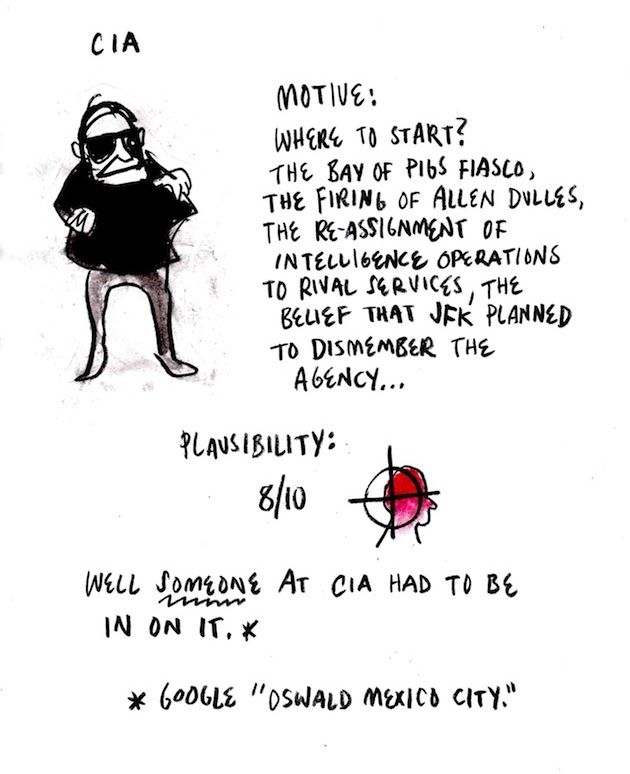 CIA
MOTIVE:
WHERE TO START?
THE BAY OF PIGS FIASCO,
THE FIRING OF ALLEN DULLES,
THE RE-ASSIGNMENT OF
INTELLIGENCE OPERATIONS
TO RIVAL SERVICES, THE
BELIEF THAT JFK PLANNED
TO DISMEMBER THE
AGENCY...
PLAUSIBILITY:
8/10
WELL SOMEONE AT CIA HAD TO BE
IN ON IT. *
* GOOGLE "OSWALD MEXICO CITY."